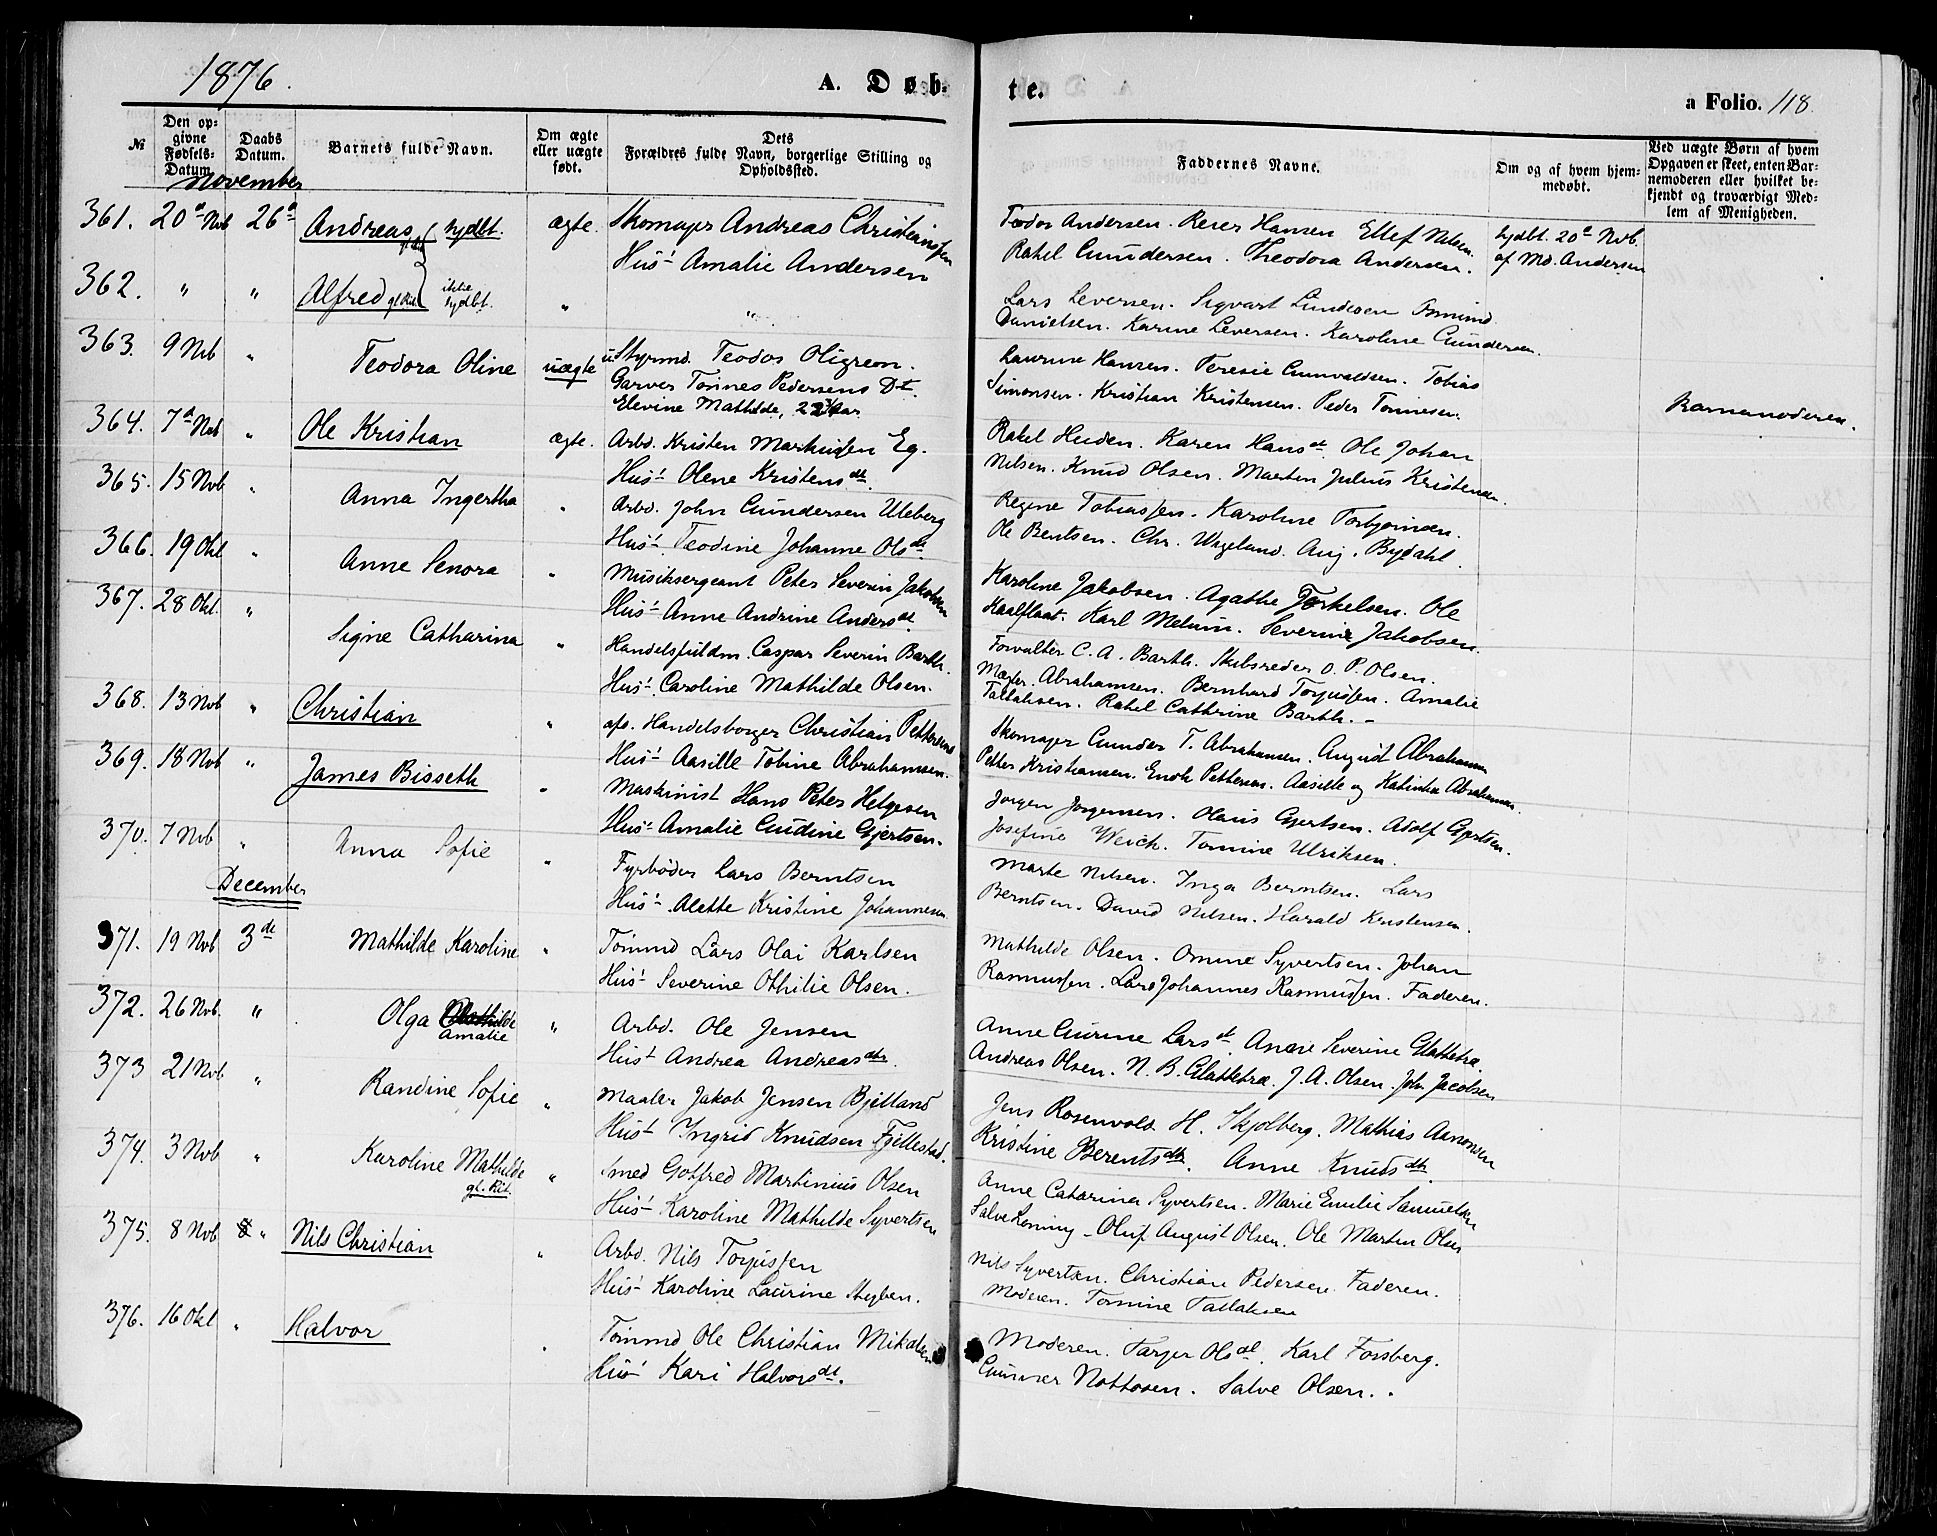 1876.
A. Døb-
te.
a Folio. 118.
№
Den op-
givne
Fødsels-
Datum.
Daabs
Datum.
Barnets fulde Navn.
Om ægte
eller uægte
født.
Dets
Forældres fulde Navn, borgerlige Stilling og
Opholdssted.
Faddernes Navne.
Om og af hvem hjem-
medøbt.
Ved uægte Børn af hvem
Opgaven er skeet, enten Bar-
nemoderen eller hvilket be-
kjendt og troværdigt Med-
lem af Menigheden.
November
361. 20d Nvb 26d Andreas hjdbt. ægte. Skomager Andreas Christensen
Hust Amalie Andersen
Teodor Andersen. Reier Hansen Ellef Nilsen.
Rakel Gundersen. Theodora Andersen.
hjdbt. 20d Nvb.
af Md. Andersen
362. " " Alfred ikke hjdbt. " "
Lars Leversen. Sigvart Gundersen Omund
Danielsen. Karine Leversen. Karoline Gundersen.
363. 9 Nvb " Teodora Oline uægte u. Styrmd. Teodos Oligreen.
Garver Tönnes Pedersens Dt.
Elevine Mathilde, 22 Aar
Laurine Hansen. Teresie Gunvaldsen. Tobias
Simonsen. Kristian Kristensen. Peder Tönnesen.
Barnemoderen.
364. 7d Nvb " Ole Kristian ægte. Arbd. Kristen Markussen Eg.
Hust Olene Kristensdt.
Rakel Heiden. Karen Hansdt. Ole Johan
Nilsen. Knud Olsen. Marten Julius Kristensen.
365. 15 Nvb " Anna Ingertha " Arbd. John Gundersen Uleberg
Hust Teodine Johanne Olsdt.
Regine Tobiassen. Karoline Torbjörnsen.
Ole Bentsen. Chr. Wageland. Aug. Bydahl.
366. 19 Okt " Anne Lenora " Musiksergeant Peter Severin Jakobsen
Hust Anne Andrine Andersdt.
Karoline Jakobsen. Agathe Torkelsen. Ole
Kaalflaat. Karl Melum. Severine Jakobsen.
367. 28 Okt. " Signe Catharina " Handelsfuldm. Caspar Severin Barth.
Hust Caroline Mathilde Olsen.
Forvalter C. A. Barth. Skibsreder O. P. Olsen.
Mægler. Abrahamsen. Bernhard Torjussen. Amalie
Tallaksen. Rakel Cathrine Barth. –
368. 13 Nvb " Christian " afd. Handelsborger Christian Pettersens
Hust Aasille Tobine Abrahamsen.
Skomager Gunder T. Abrahamsen. August Abrahamsen
Petter Kristiansen. Enok Pettersen. Aasille og Katinka Abrahamsen.
369. 18 Nvb " James Bisseth " Maskinist Hans Peter Helgesen
Hust Amalie Gudine Gjertsen.
Jørgen Jørgensen. Olaus Gjertsen. Adolf Gjertsen.
Josefine Weich. Tomine Ulriksen.
370. 7 Nvb " Anna Sofie " Fyrböder Lars Berntsen
Hust Alette Kristine Johannesen.
Marte Nilsen. Inga Berntsen. Lars
Berntsen. David Nilsen. Harald Kristensen.
December
371. 19 Nvb 3de Mathilde Karoline " Tömmd Lars Olai Karlsen
Hust Severine Othilie Olsen.
Mathilde Olsen. Omine Syvertsen. Johan
Rasmussen. Lars Johannes Rasmussen. Faderen.
372. 26 Nvb. " Olga Mathilde
Amalie " Arbd. Ole Jensen
Hust Andrea Andreasdtr
Anne Gurine Larsdt. Anne Severine Glattetre.
Andreas Olsen. N. B. Glattetre. J. A. Olsen. Joh. Jacobsen
373 21 Nvb " Randine Sofie " Maaler Jakob Jensen Bjelland
Hust Ingrid Knudsen Fjellestad.
Jens Rosenvold. H. Skjolberg. Mathias Aanonsen
Kristine Berentsdtr. Anne Knudsdtr.
374. 3 Nvb " Karoline Mathilde
gl. Kit. " Smed Gotfred Martinius Olsen
Hust Karoline Mathilde Syvertsen
Anne Catarina Syvertsen. Marie Emilie Samuelsen
Salve Loning. Oluf August Olsen. Ole Marten Olsen
375. 8 Nvb " Nils Christian " Arbd. Nils Torjussen
Hust Karoline Laurine Styben.
Nils Syvertsen. Christian Pedersen. Faderen.
Moderen. Tomine Tallaksen
376. 16 Okt " Halvor " Tömmd Ole Christian Mikalsen
Hust Kari Halvorsdt.
Moderen. Tarjer Olsdt. Karl Forsberg.
Gunner Nottosen. Salve Olsen.